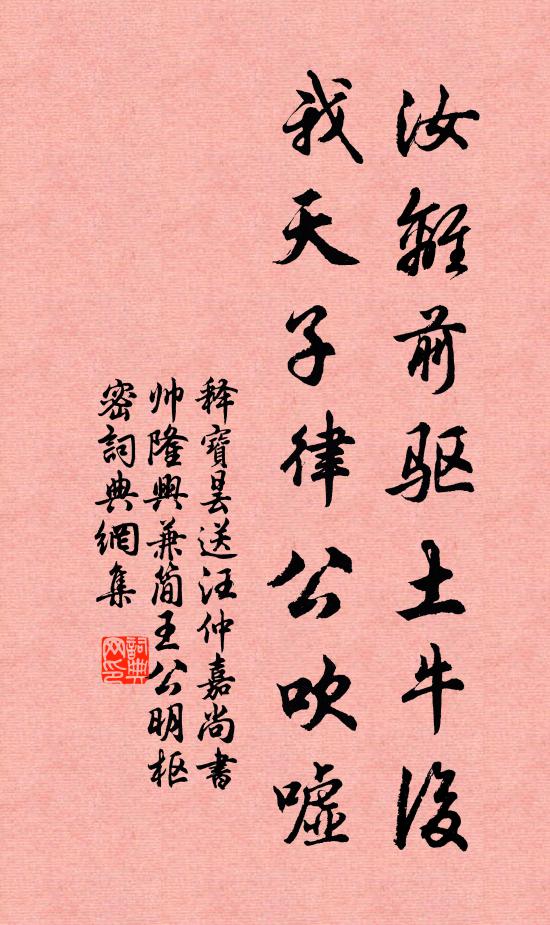 汝難前驱土牛後
我天子律公吹嘘
释寶曇送汪仲嘉尚書
帅隆興兼简王公明枢
密詞典網集
詞典网印